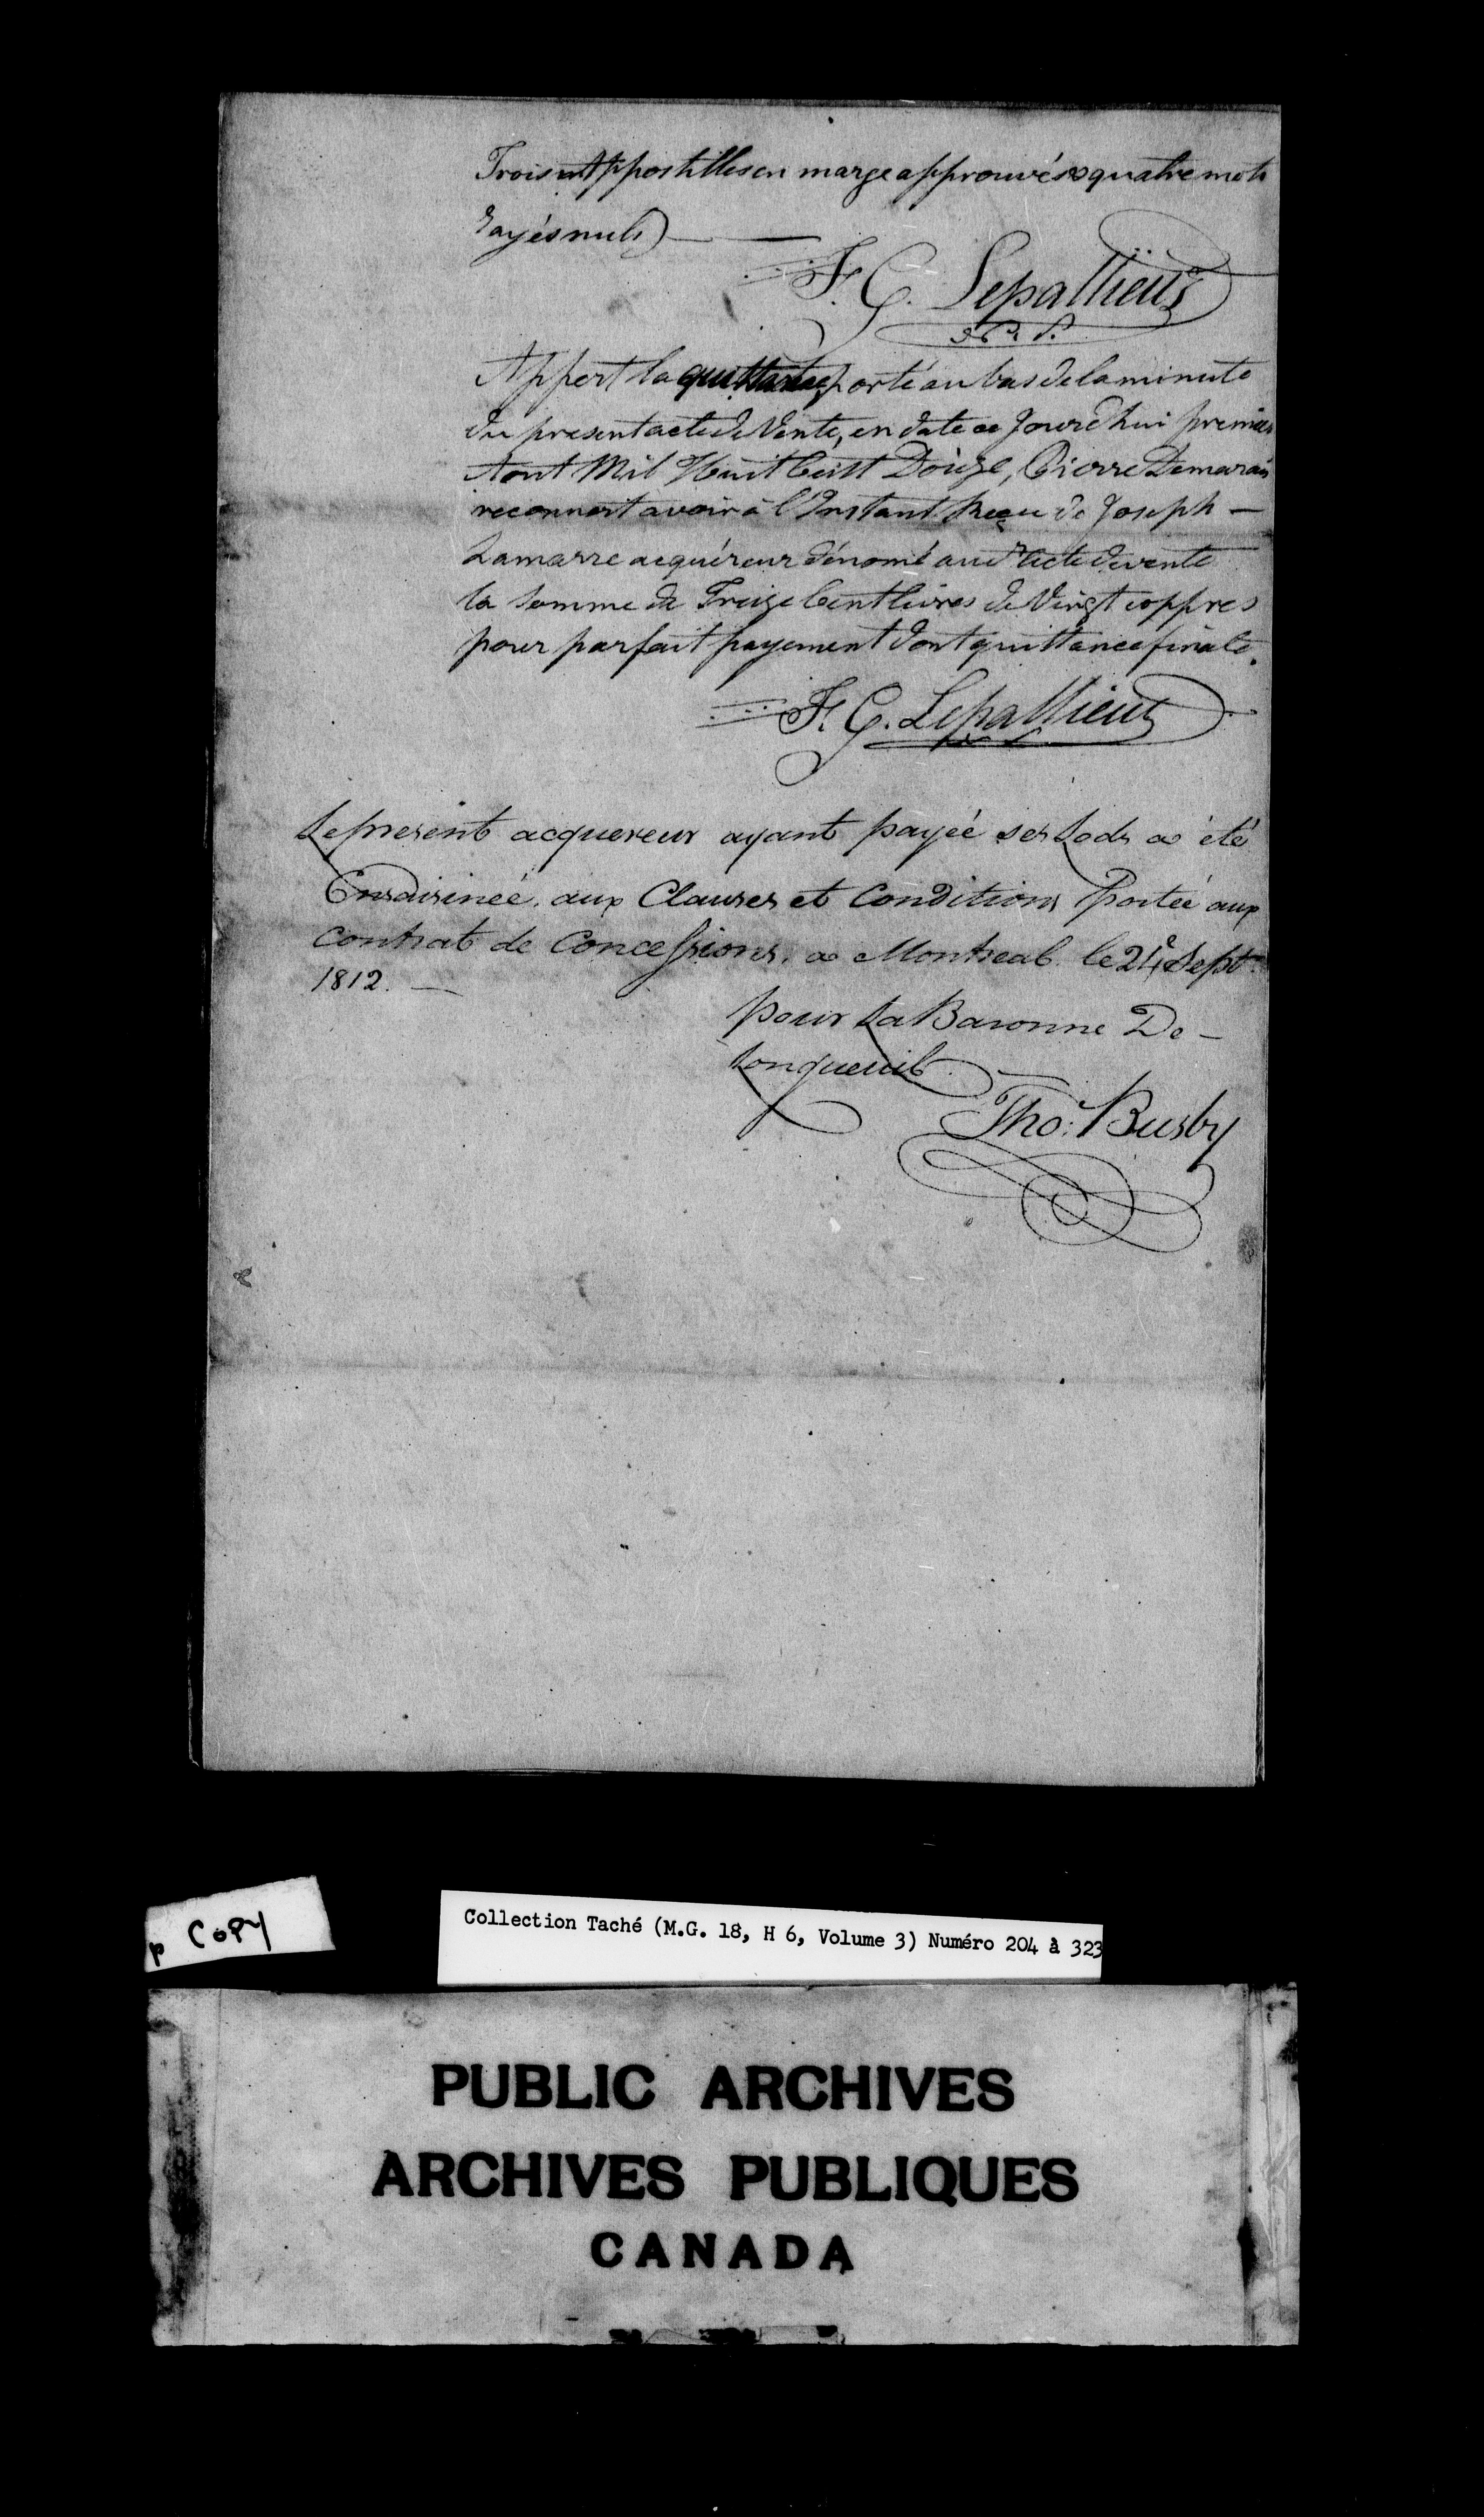 Trois Appostilles en marge approuvés & quatre mots
rayés nuls)
F. G. Lepallieur
N. P.
Appert la quittance porté au bas de la minute
du present acte de Vente, en date ce Jourd'hui premier
Aout Mil Huit Cent Douze, Pierre Demarais
reconnoit avoir à l'Instant Reçu de Joseph —
Lamarre acquéreur dénomé aud.t acte de vente
la somme de Treize Cent livres de Vingt coppres
pour parfait payement dont quittance finale.
F. G. Lepallieur
Le present acquereur ayant payéé ses Lods a été
Ensaisinéé. aux Clauses et Conditions Portéé aux
Contrat de Concessions. a Montreal le 24e Sept.
1812. —
pour La Baronne De —
Longueuil
Tho: Busby
p COPY
Collection Taché (M.G. 18, H 6, Volume 3) Numéro 204 à 323
PUBLIC ARCHIVES
ARCHIVES PUBLIQUES
CANADA